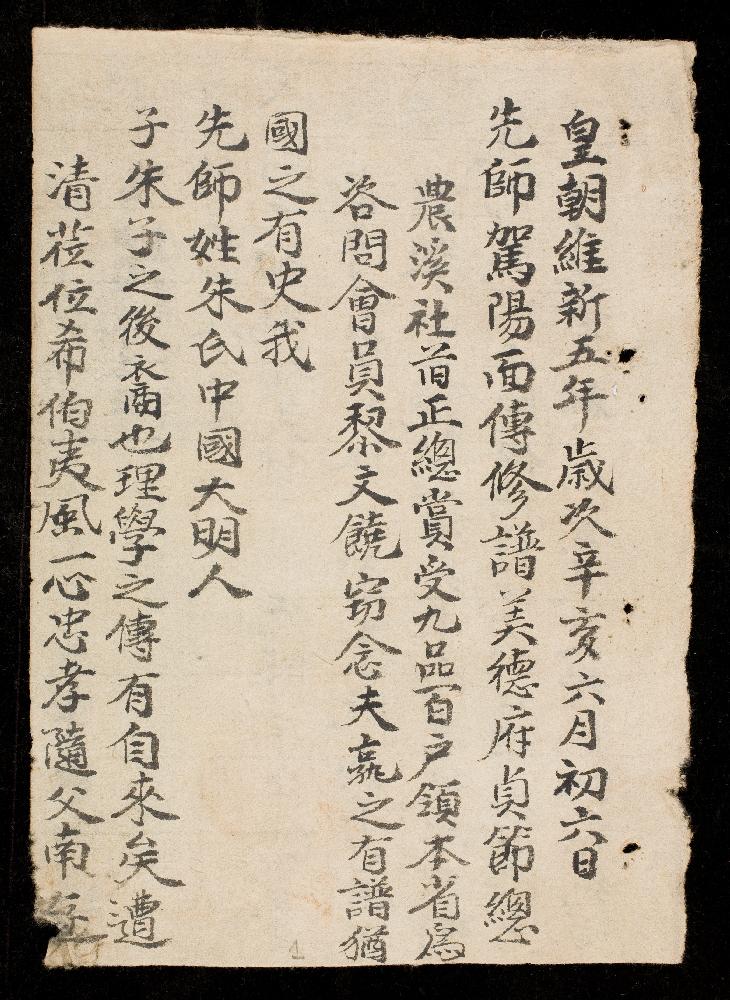 皇朝維新五年歲次辛亥六月初六日
先師駕陽面傳修譜美德府貞節總
農溪社首正總賞受九品百户領本省爲
咨問會員黎文饒窃念夫家之有譜猶
國之有史我
先師姓朱氏中國大明人
子朱子之後裔也理學之傳有自來矣遭
清莅位希伯夷風一心忠孝隨父南